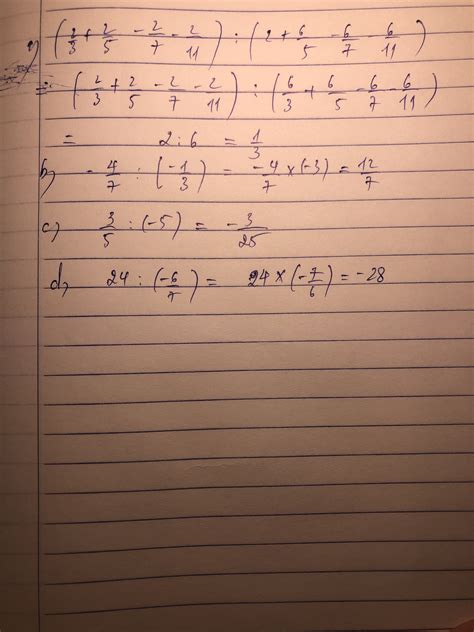 a) (2/3 + 2/5 - 2/7 - 2/11) : (2 + 6/5 - 6/7 - 6/11)
= (2/3 + 2/5 - 2/7 - 2/11) : (6/3 + 6/5 - 6/7 - 6/11)
= 2 : 6 = 1/3
b) -4/7 : (-1/3) = -4/7 × (-3) = 12/7
c) 3/5 : (-5) = -3/25
d) 24 : (-6/7) = 24 × (-7/6) = -28